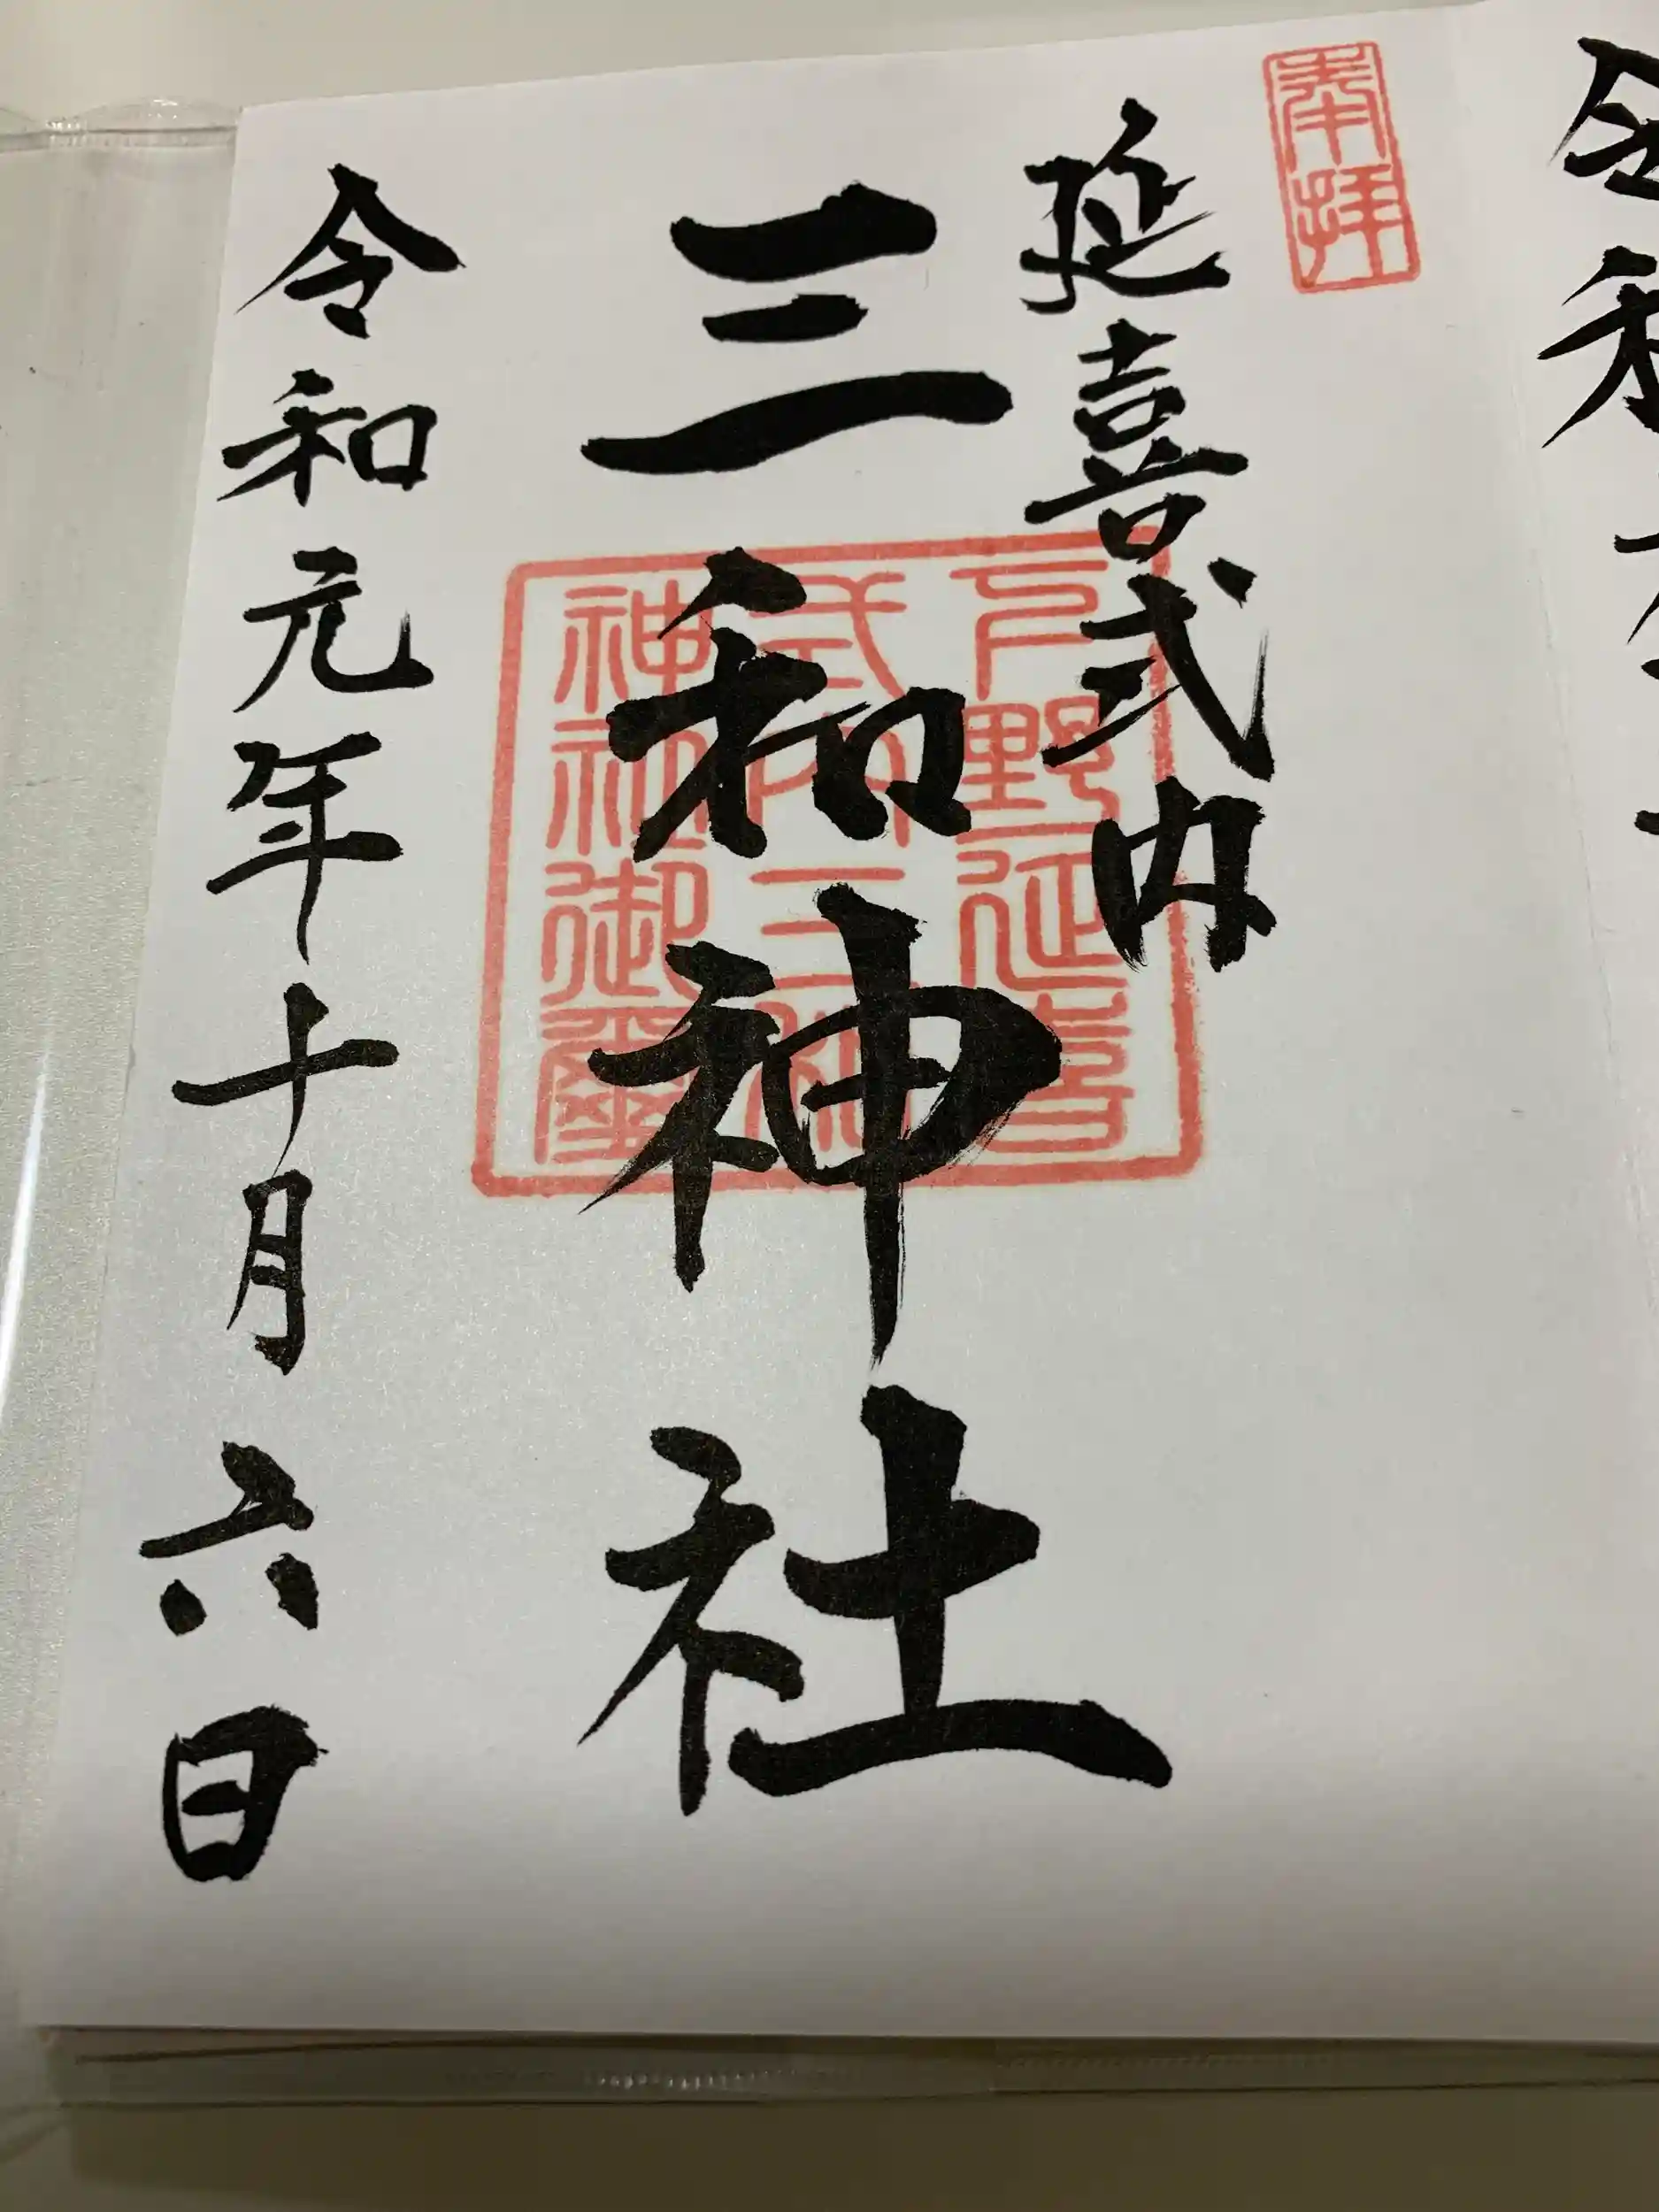 奉拝
延喜式内
三和神社
下野延喜
式内三和
神社御璽
令和元年十月六日